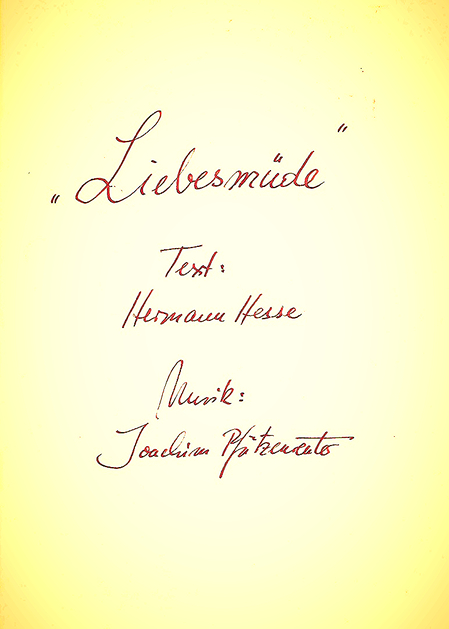 „Liebesmüde"
Text:
Hermann Hesse
Musik:
Joachim